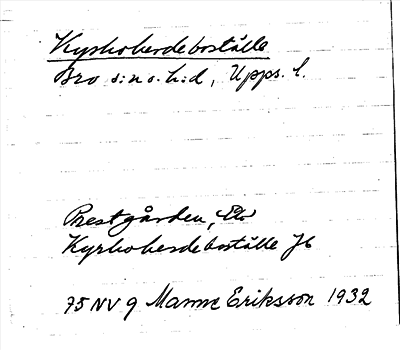 Kyrkoherdeboställe
Bro s:n o. h:d, Upps. l.
Prestgården,
Kyrkoherdeboställe Jb
75 NV 9 Manne Eriksson 1932